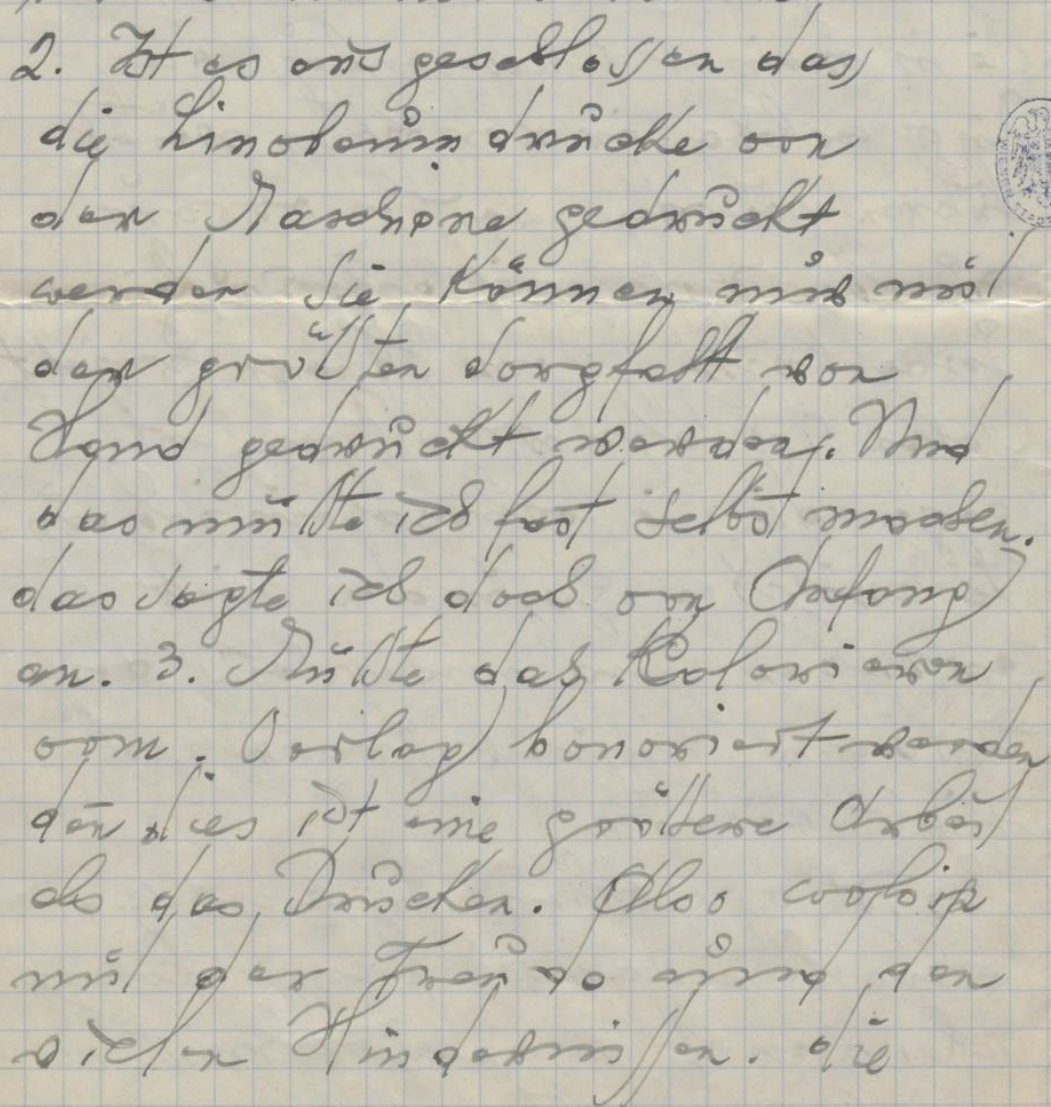 2. Ist es aus geschlossen das
die Linoleum drucke von
der Maschine gedruckt
werden sie können nur mit
der größten sorgfalt von
Hand gedruckt werden. Und
das müßte ich fast selbst machen.
das sagte ich doch von Anfang
an. 3. Müßte das Kolorieren
vom Verlag honoriert werden
den dies ist eine größere Arbeit
als das Drucken. Also
mit der Freude und den
vielen Hindernissen. die